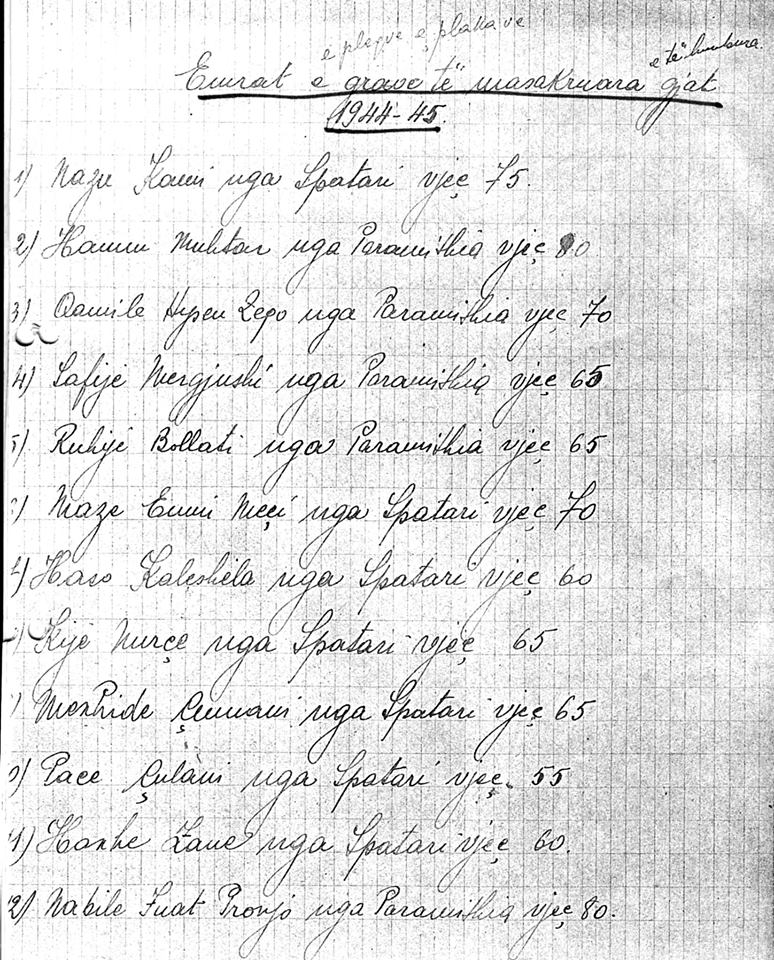 e pleqve e plakave
Emrat e grave të masakruara gjat e të humbura
1944-45.
1) Naze Kami nga Spatari vjeç 75.
2) Hanem Muhtar nga Paramithia vjeç 80
3) Qamile Hysen Zepo nga Paramithia vjeç 70
4) Safije Mergjushi nga Paramithia vjeç 65
5) Ruhije Bollati nga Paramithia vjeç 65
6) Naze Emni Meçi nga Spatari vjeç 70
7) Haso Kaleshela nga Spatari vjeç 60
Kije Nurçe nga Spatari vjeç 65
Mexhide Çumani nga Spatari vjeç 65
0) Pace Çulani nga Spatari vjeç 55
1) Hanhe Zane nga Spatari vjeç 60.
2) Nabile Fuat Pronjo nga Paramithia vjeç 80.